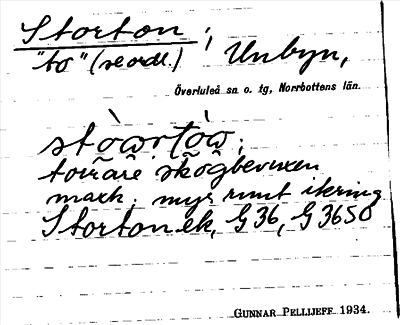 Storton ;
"to" (se ordl.) Unbyn,
Överluleå sn o. tg, Norrbottens län.
stò̀wṛtòw̥ ;
torrare skogbevuxen
mark ; myr runt ikring
Storton ek, G 36, G 3650
GUNNAR PELLIJEFF 1934.